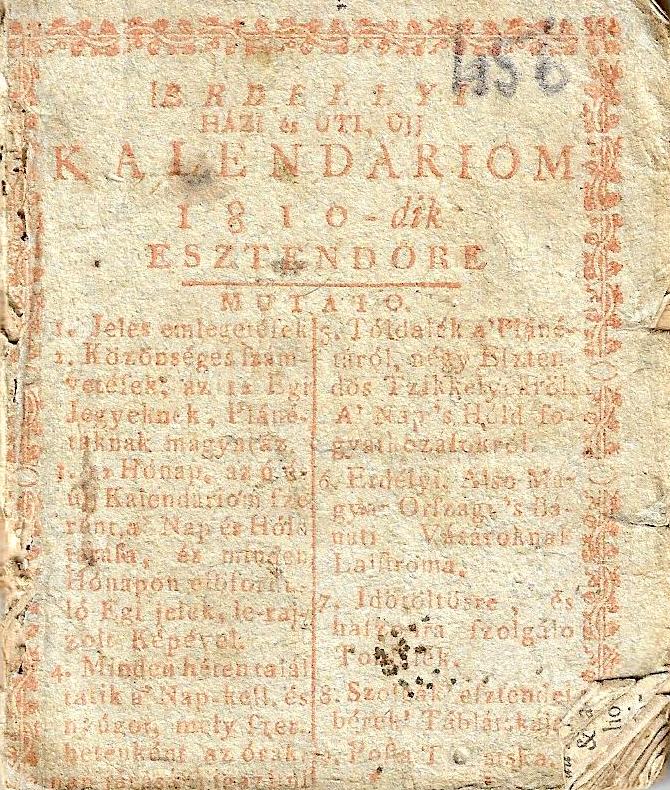 ERDELLYI
HAZI es UTI, UJJ
KALENDARIOM
1810-dik
ESZTENDORE
MUTATO.
1. Jeles emlegetéſek
2. Közönséges ſzám-
vetéſek, az 12 Egi
Jegyeknek, Pláné-
taknak magyaráz.
3. az Hónap, az ó és
új Kalendáriom ſze-
rént, a' Nap és Hóld
és minden
Hónapon
ló Egi jelek, le-raj-
zolt Képével.
4. Minden héten talál
tatik a' Nap-kelt, és
nyúgot, mely
hetenként az órák-
5. Tóldalék a' Pláné-
táról, négy Eſzten-
dös Tzikkelyekröl.
A' Nap 's Hóld fo-
gyatkozaſokról.
6. Erdélyi, Alſo Ma-
gyar Orſzági 's Bá-
náti Vásároknak
Laiſtroma.
7. Időtöltéſre, és
haſzonra ſzolgáló
8. Szolgák' eſztendei
bérek' Táblátskája
9. Poſta
456
&